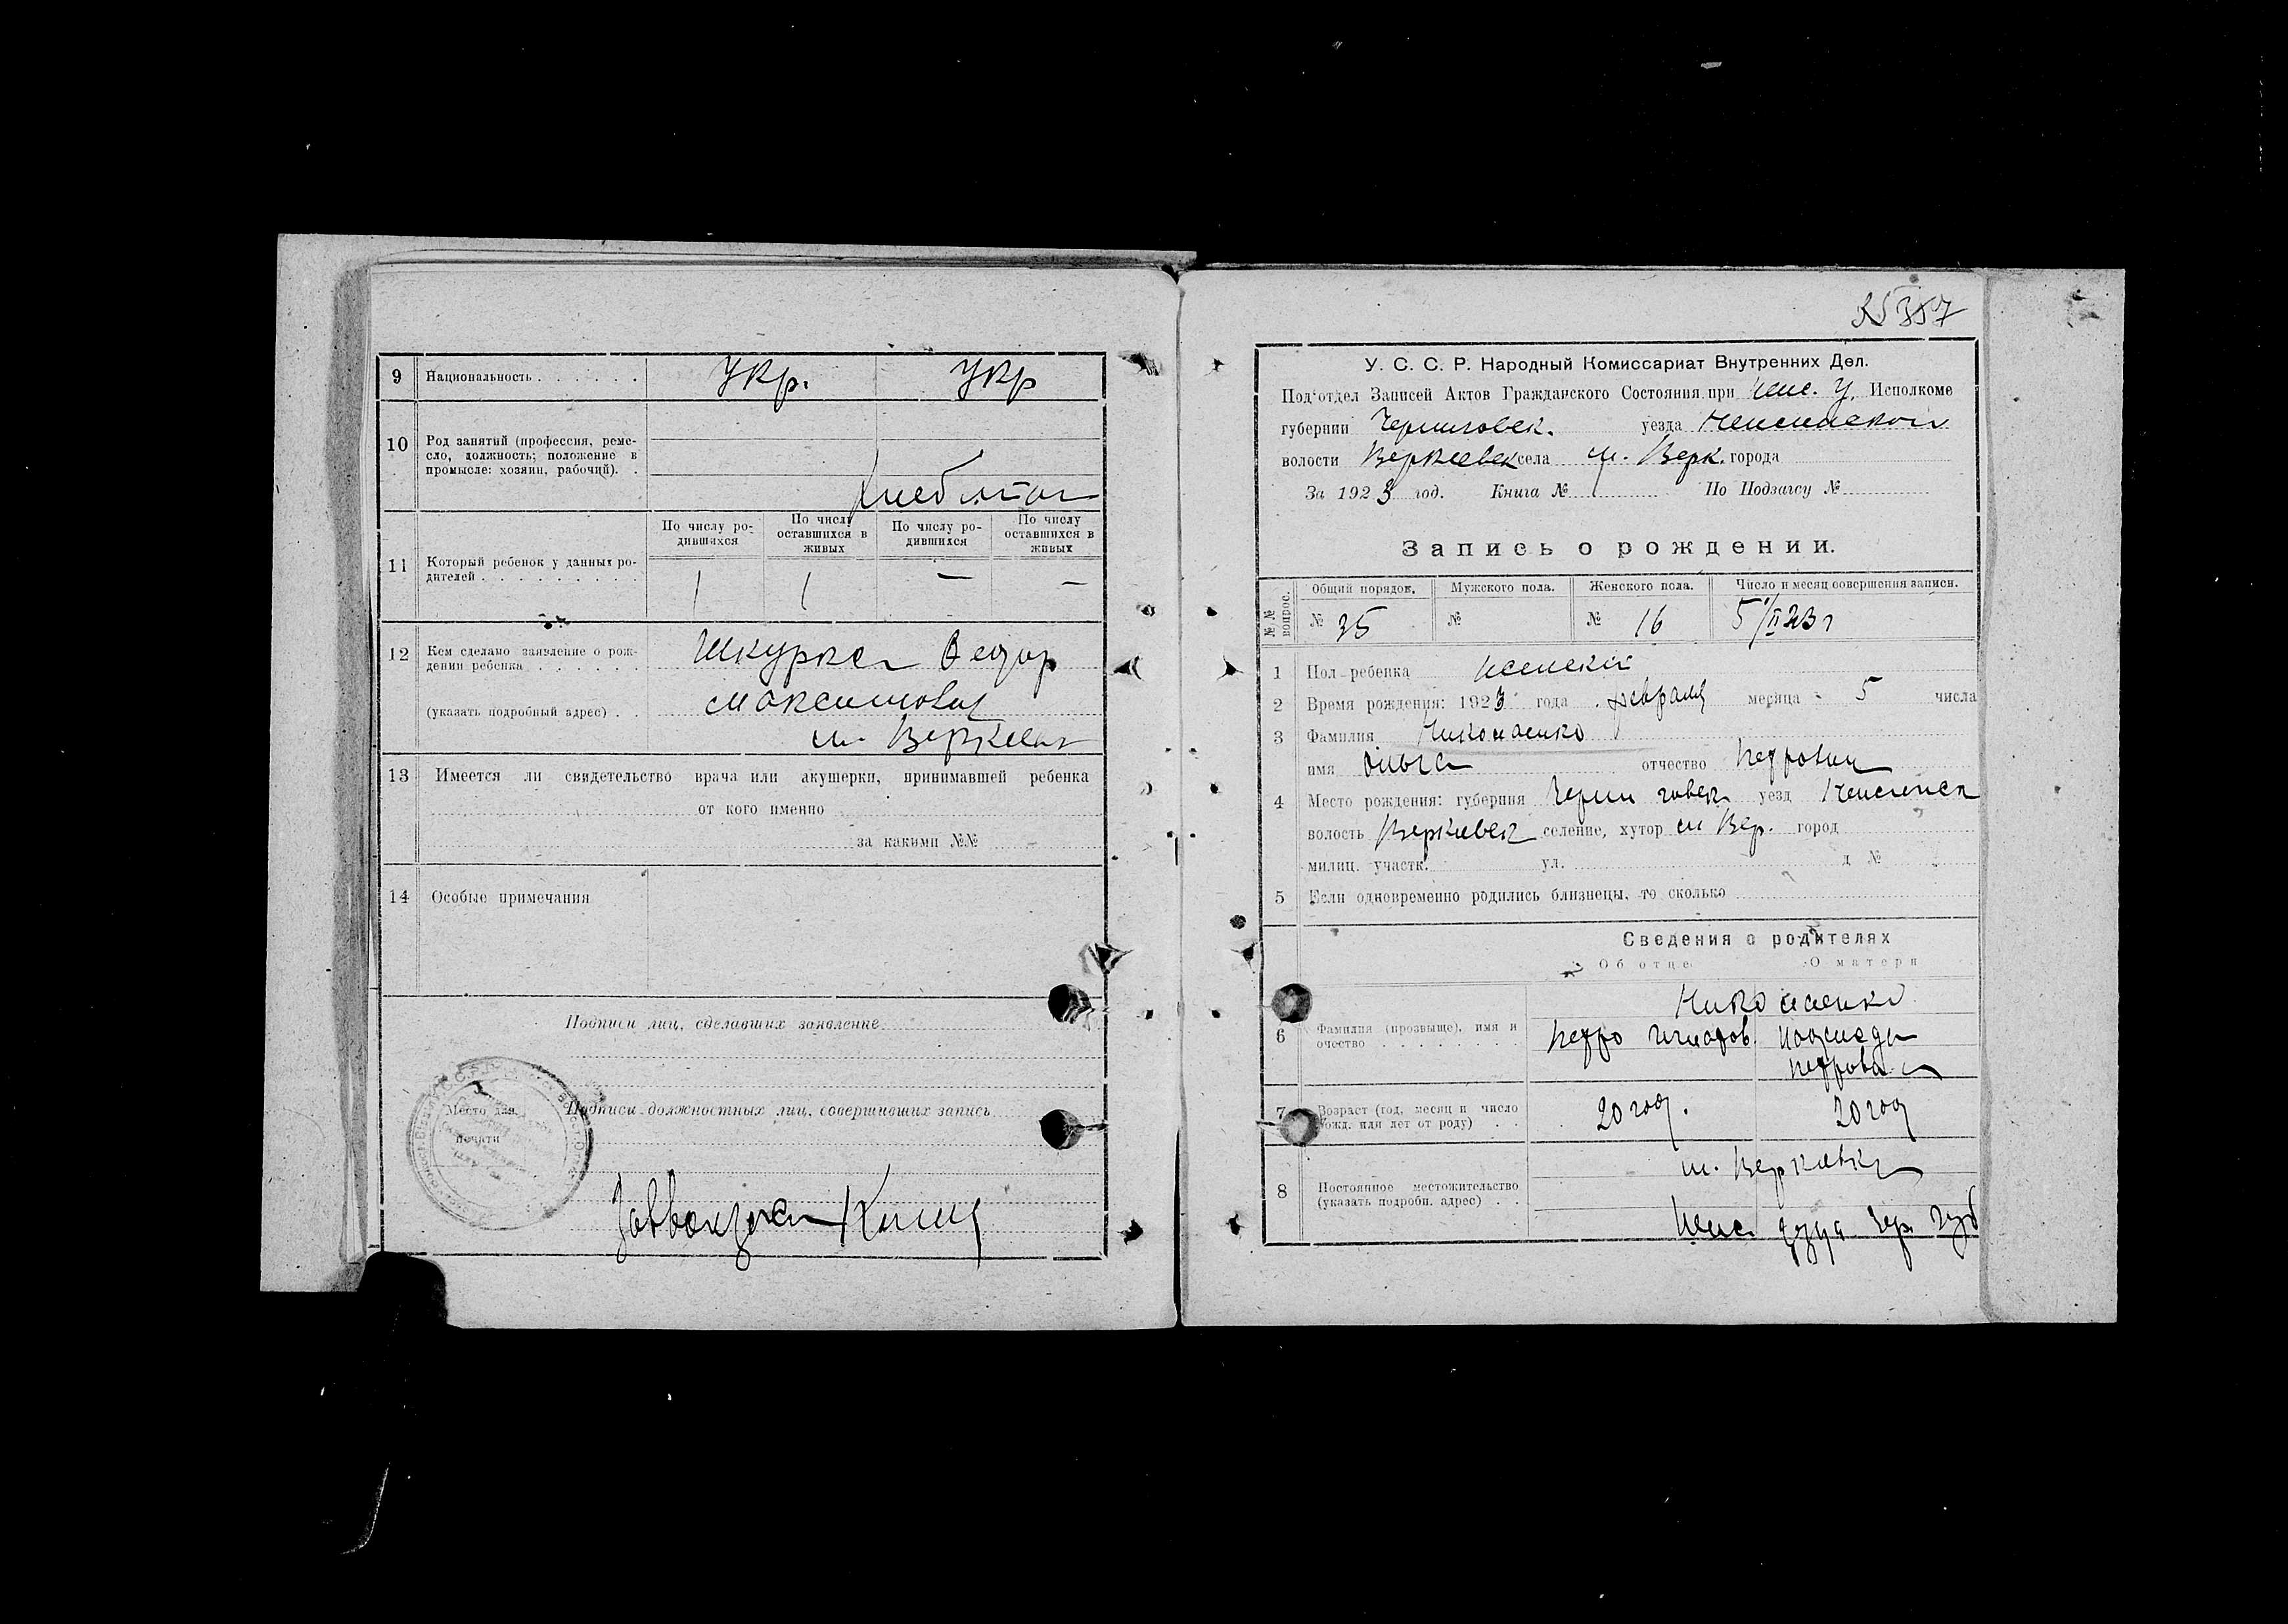 9 Национальность . . . . . . Укр. Укр
10 Род занятий (профессия, реме-
сло, должность; положение в
промысле: хозяин, рабочий). .
11 Который ребенок у данных ро-
дителей . . . . . . . . .
По числу ро-
дившихся
По числу
оставшихся в
живых
По числу ро-
дившихся
По числу
оставшихся в
живых
1 1 — —
12 Кем сделано заявление о рож-
дении ребенка . . . . . .
Федор
(указать подробный адрес) . .
Максимович
м. Веркиевк
13 Имеется ли свидетельство врача или акушерки, принимавшей ребенка
от кого именно
за какими №№
14 Особые примечания
Подписи лиц, сделавших заявление
Место для
печати
Подписи должностных лиц, совершивших запись
35 357
У. С. С. Р. Народный Комиссариат Внутренних Дел.
Под'отдел Записей Актов Гражданского Состояния при Неж. У. Исполкоме
губернии Черниговск. уезда Неженской
волости Веркиевск села м. Верк. города
За 1923 год. Книга № По Подзагсу №
Запись о рождении.
№№ вопрос.
Общий порядок. Мужского пола. Женского пола. Число и месяц совершения записи.
№ 35 № № 16 5/II 23 г
1 Пол ребенка женский
2 Время рождения: 1923 года февраля месяца 5 числа
3 Фамилия
имя Ольга отчество Петровна
4 Место рождения: губерния Черниговск уезд Неженск
волость Веркиевск селение, хутор м Вер. город
милиц. участк. ул. д №
5 Если одновременно родились близнецы, то сколько
Сведения о родителях
Об отце О матери
6 Фамилия (прозвище), имя и
очество . . . . . . . .
Петро
Петровна
7 Возраст (год, месяц и число
рожд. или лет от роду) . .
20 год. 20 год
8 Постоянное местожительство
(указать подробн. адрес) . .
м. Веркиевка
Неж. уезда Чер. губ